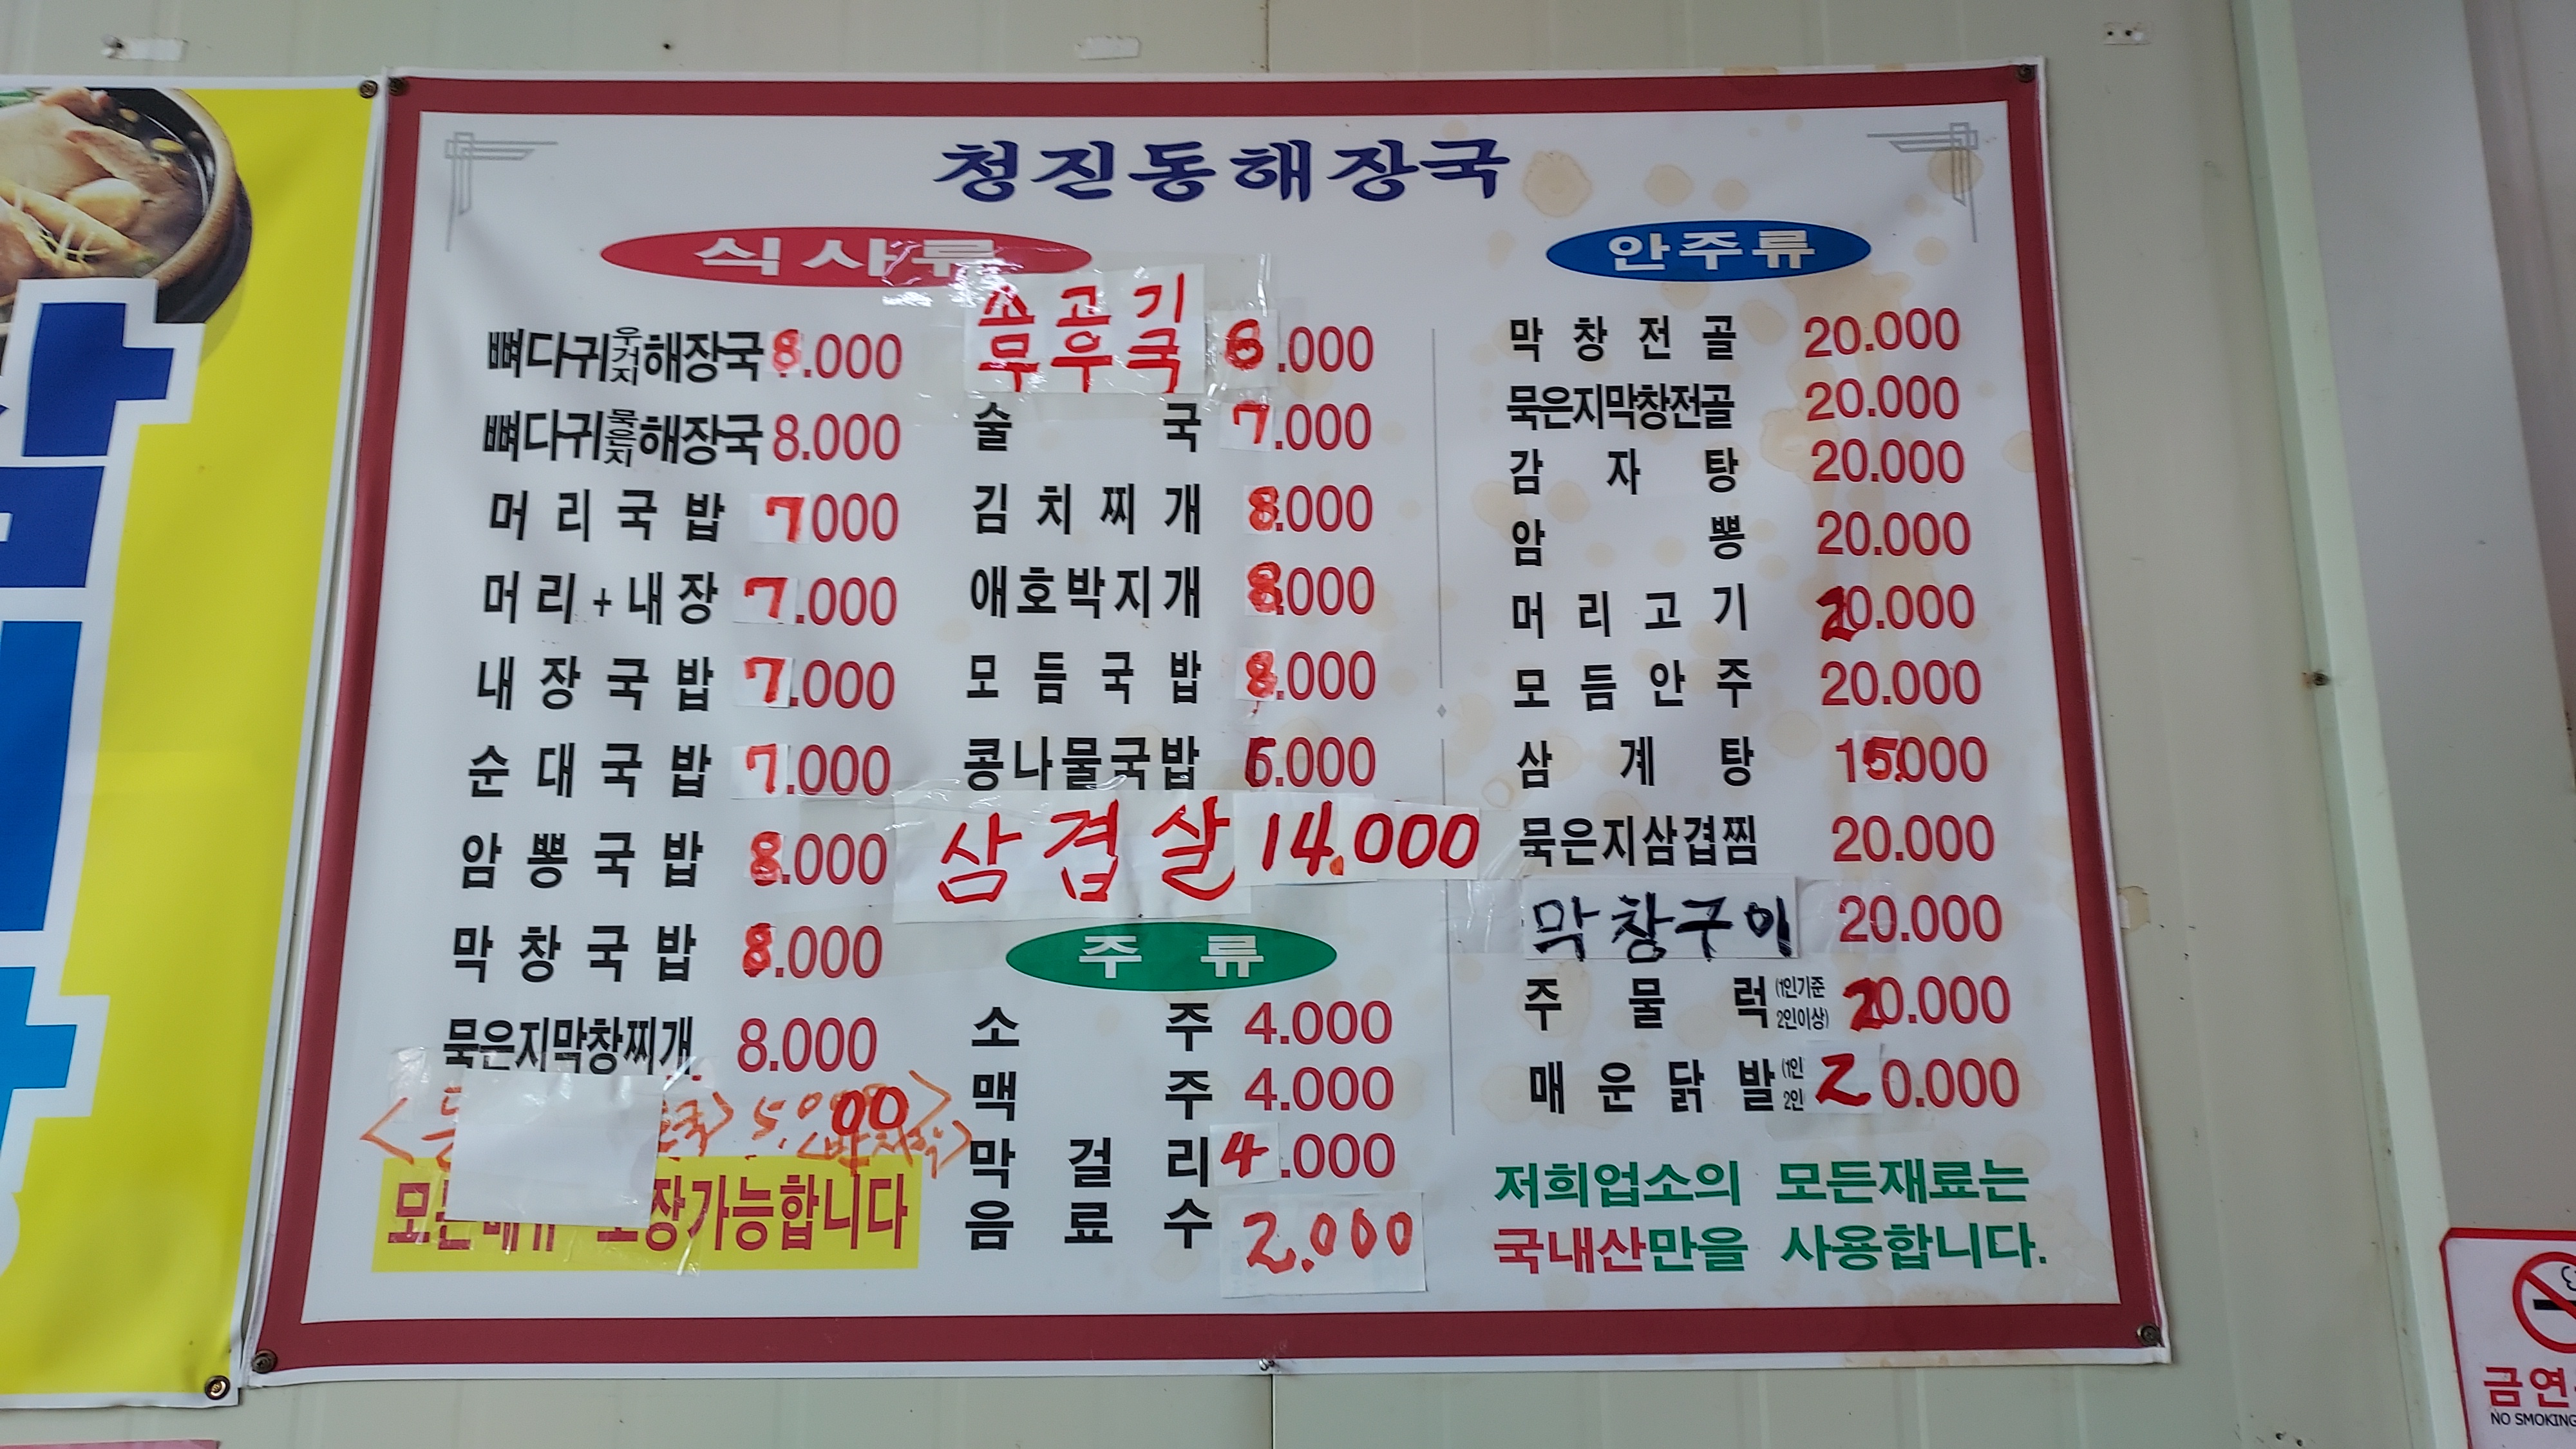 청진동해장국
식사류
뼈다귀우거지해장국 8.000
뼈다귀묵은지해장국 8.000
머리국밥 7.000
머리+내장 7.000
내장국밥 7.000
순대국밥 7.000
암뽕국밥 8.000
막창국밥 8.000
묵은지막창찌개 8.000
모든 포장가능합니다
소고기
무우국 6.000
술국 7.000
김치찌개 8.000
애호박지개 8.000
모듬국밥 8.000
콩나물국밥 6.000
삼겹살 14.000
주류
소주 4.000
맥주 4.000
막걸리 4.000
음료수 2.000
안주류
막창전골 20.000
묵은지막창전골 20.000
감자탕 20.000
암뽕 20.000
머리고기 20.000
모듬안주 20.000
삼계탕 15.000
묵은지삼겹찜 20.000
막창구이 20.000
주물럭(1인기준 2인이상) 20.000
매운닭발(1인 2인 20.000
저희업소의 모든재료는
국내산만을 사용합니다.
금연
NO SMOKING